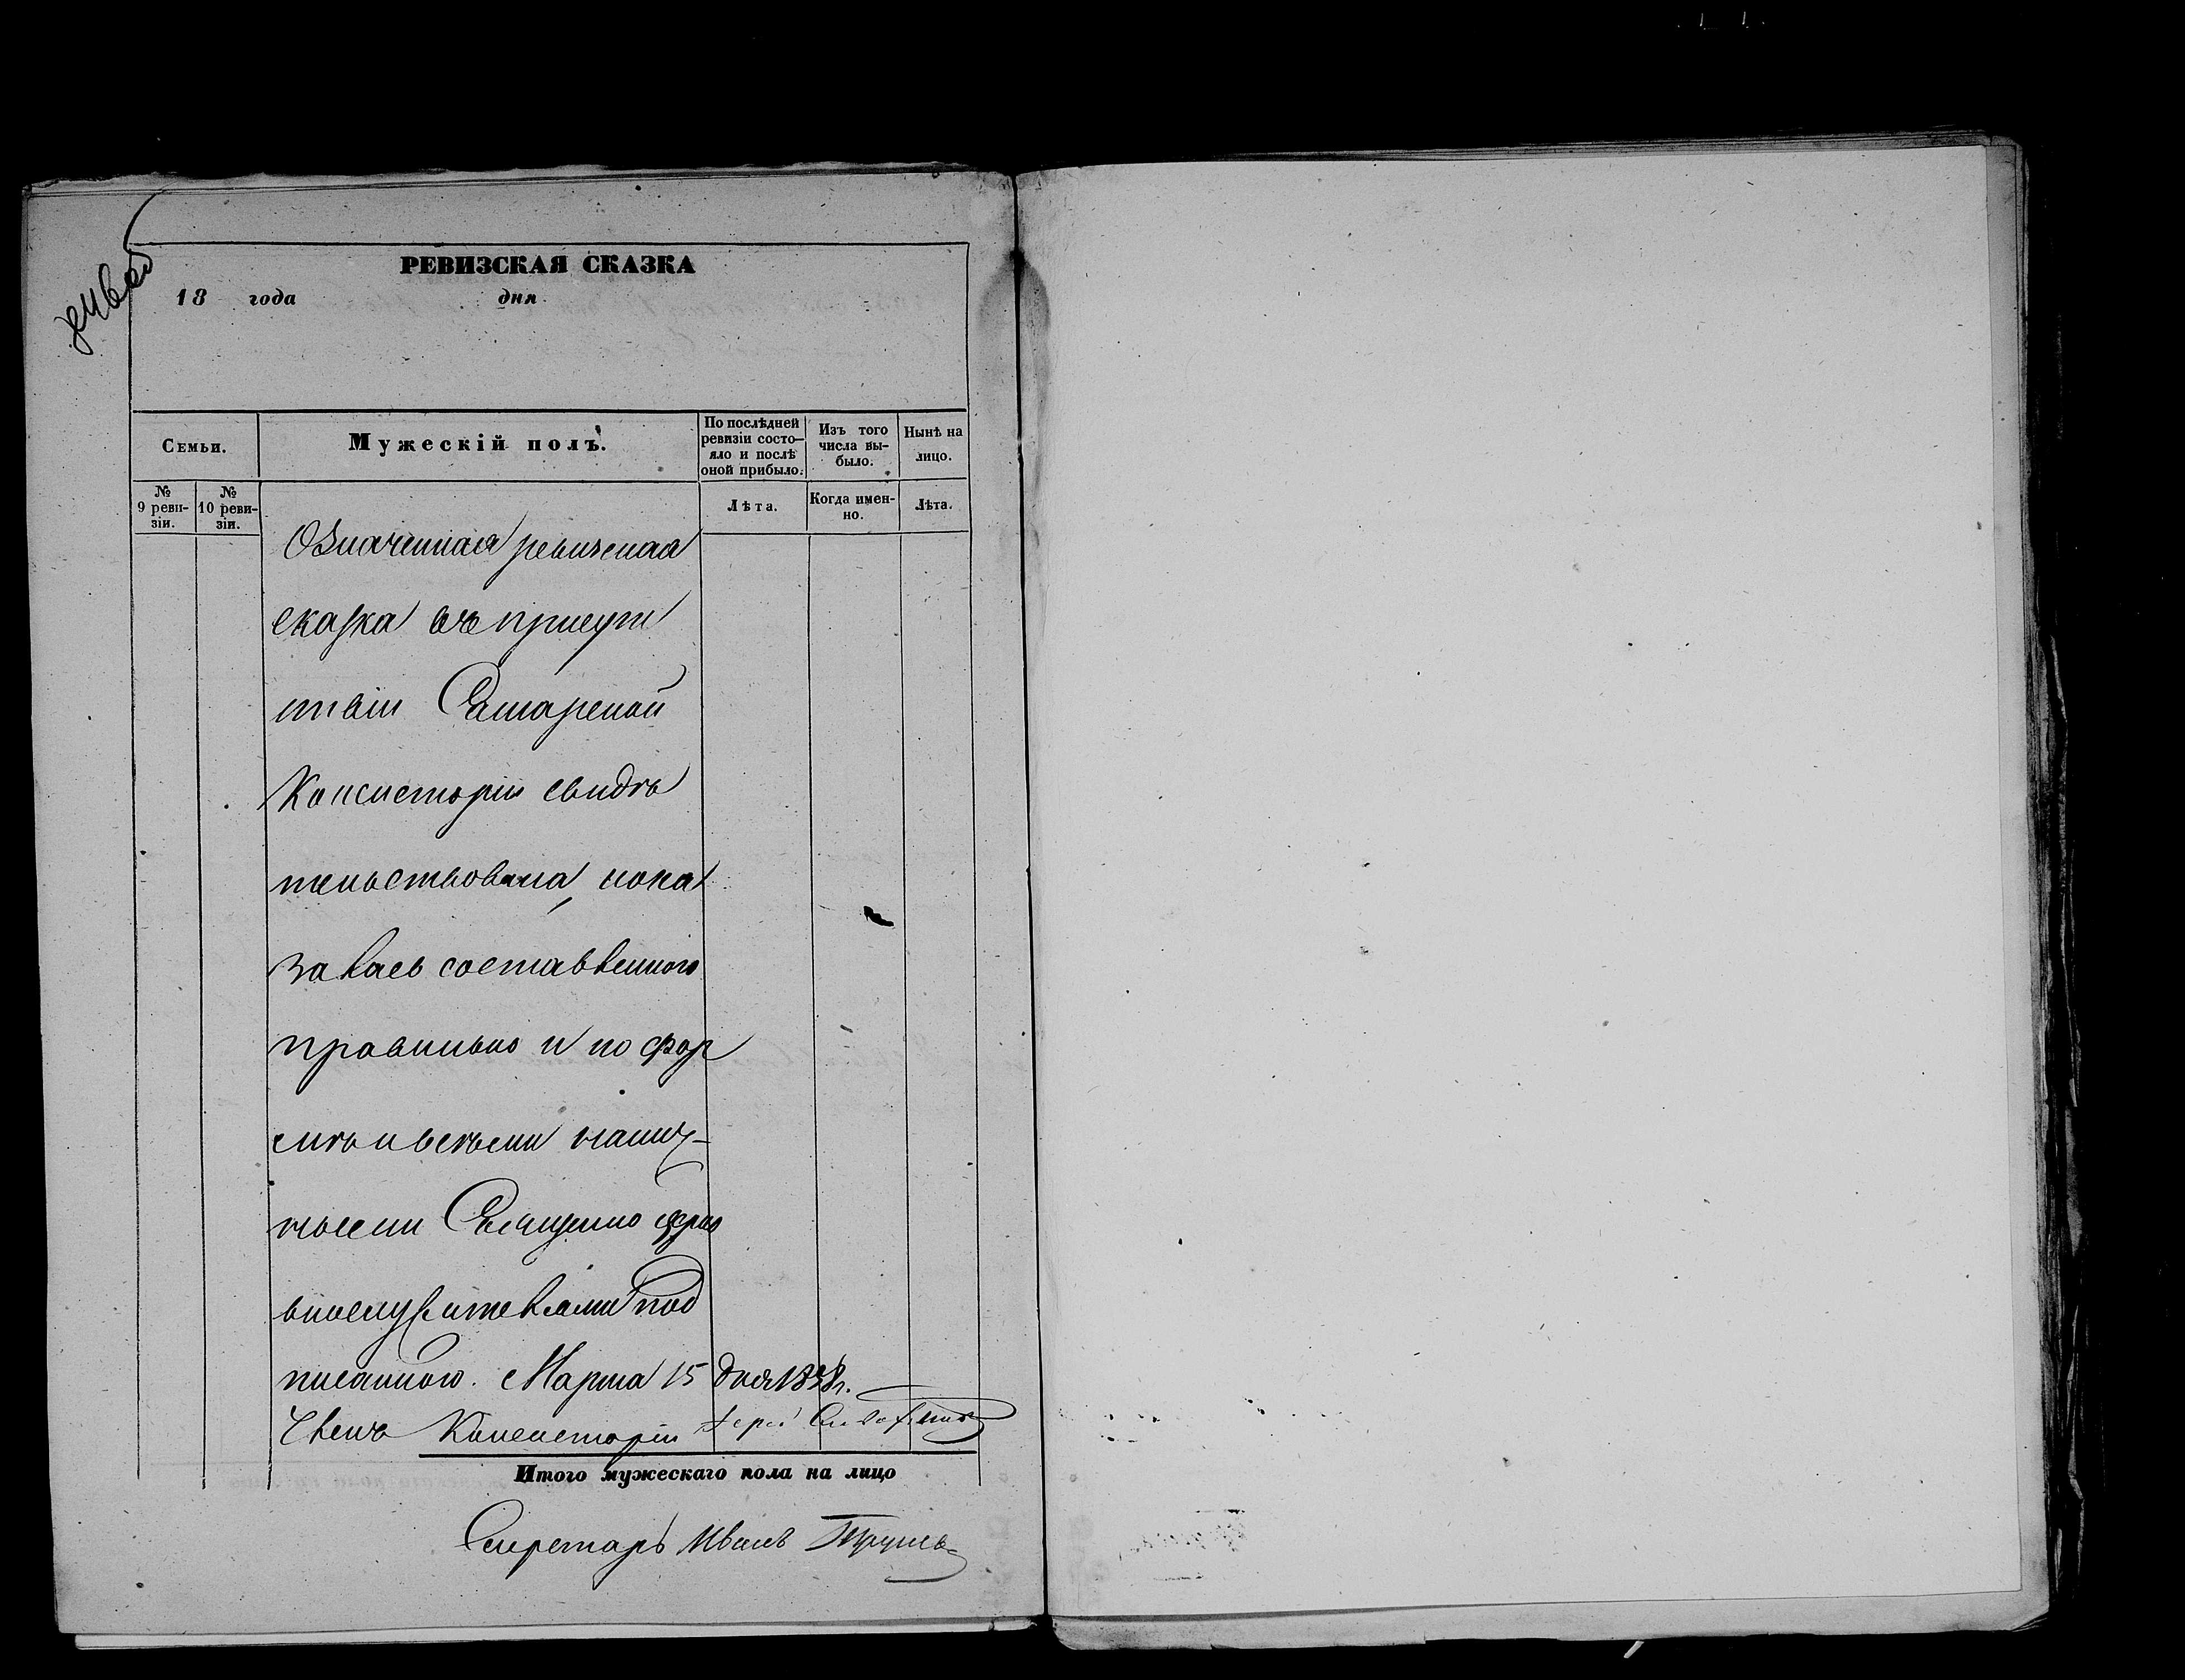 РЕВИЗСКАЯ СКАЗКА
18 года дня
Семьи.
Мужескій полъ.
По послѣдней ревизіи состо-яло и послѣ оной прибыло.
Изъ того числа вы-было.
Нынѣ на лицо.
№ 9 реви-зіи.
№ 10 реви-зіи.
Лѣта.
Когда имен-но.
Лѣта.
Означенная ревизская
сказка въ присут
ствіи Самарской
Консисторіи свидѣ
тельствована, пока
залась составленного
правильно и по фор
мѣ и всѣми налич-
ными Священно церко
внослужителями под
писанною. Марта 15 дня 1858 г.
Членъ Консисторіи Іерей
Итого мужескаго пола на лицо
Секретарь Иванъ